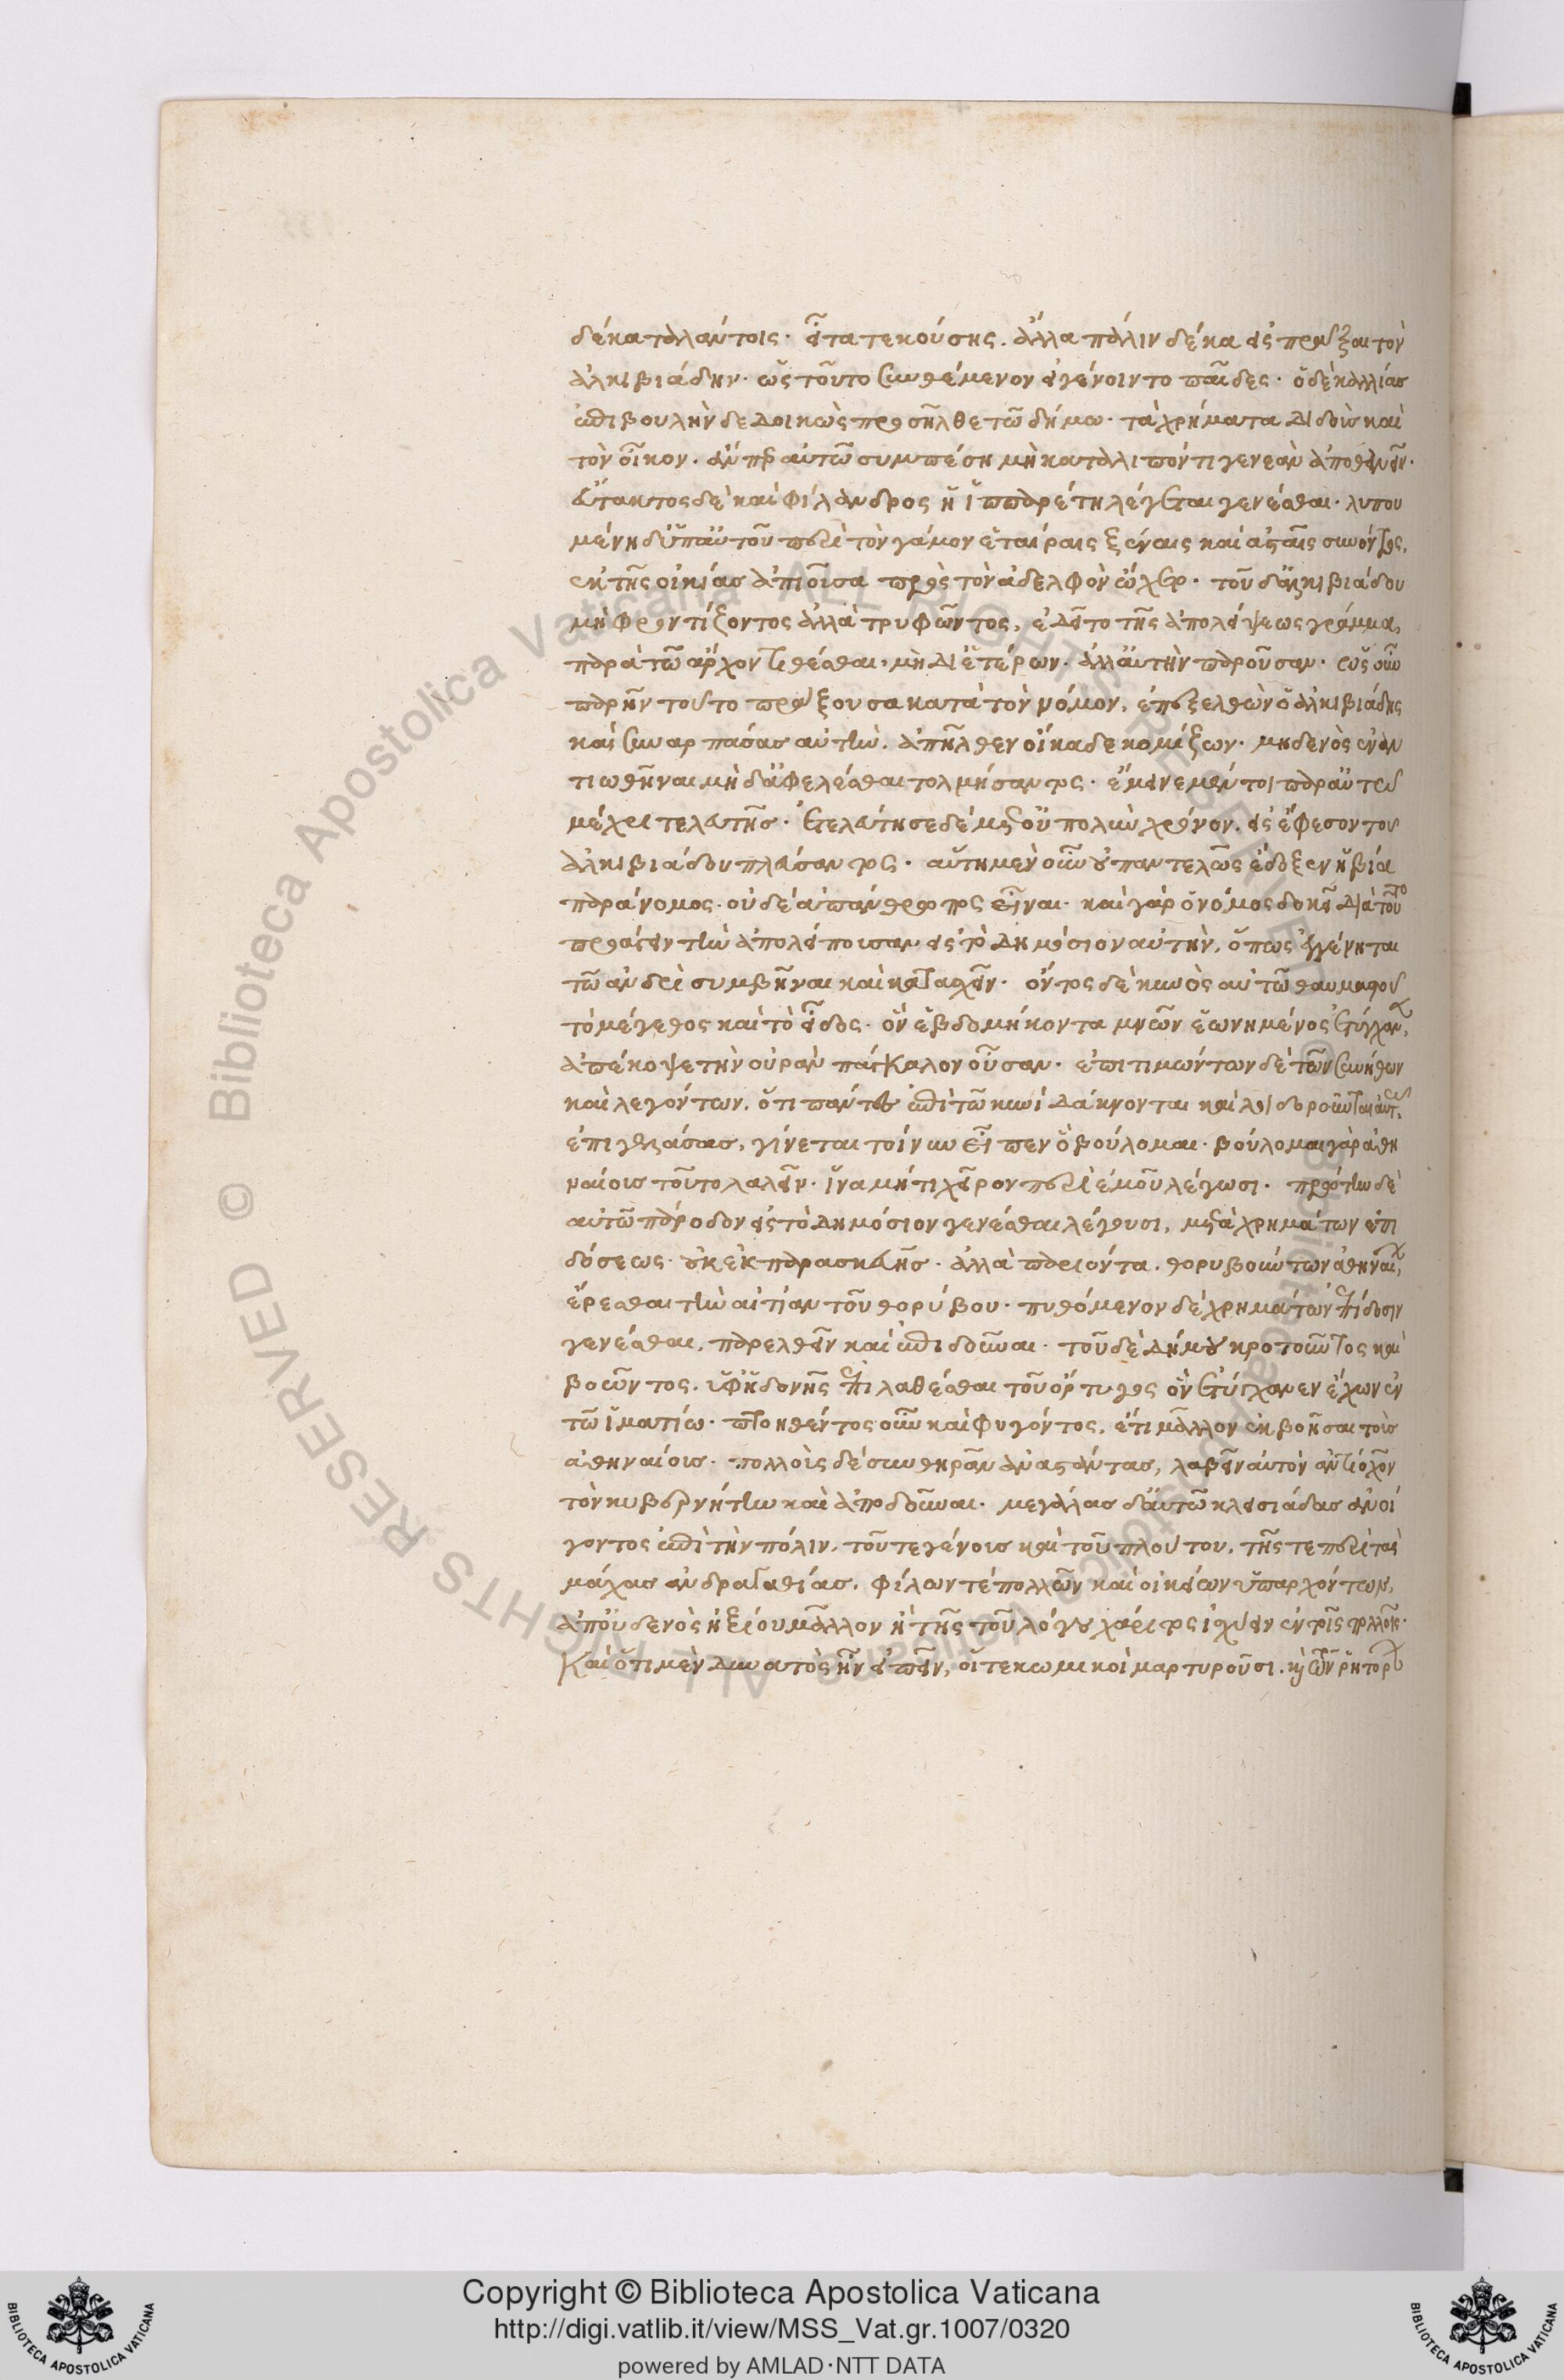 δέκα ταλάντοις. εἶτα τεκούσης. ἄλλα πάλιν δέκα εἰσπρᾶξαι τὸν
ἀλκιβιάδην. ὡς τοῦτο συνθέμενον εἰ γένοιντο παῖδες. ὁ δὲ καλλίας
ἐπιβουλὴν δεδοικὼς προσῆλθε τῶ δήμω. τὰ χρήματα διδοὺς καὶ
τὸν οἶκον. ἄνπερ αὐτῶ συμπέση μὴ καταλιπόντι γενεὰν ἀποθανεῖν.
εὔτακτος δὲ καὶ φίλανδρος ἡ ἱππαρέτη λέγεται γενέσθαι. λυπου
μένη δ' ὑπ' αὐτοῦ περὶ τὸν γάμον ἑταίραις ξέναις καὶ ἀσταῖς συνόντος,
ἐκ τῆς οἰκίας ἀπιοῦσα πρὸς τὸν ἀδελφὸν ὤχετο. τοῦ δ' ἀλκιβιάδου
μὴ φροντίζοντος ἀλλὰ τρυφῶντος, ἔδει τὸ τῆς ἀπολείψεως γράμμα,
παρὰ τῶ ἄρχοντι θέσθαι. μὴ δι' ἑτέρων. ἀλλ' αὐτὴν παροῦσαν. ὡς οὖν
παρῆν τοῦτο πράξουσα κατὰ τὸν νόμον, ἐπεξελθὼν ὁ ἀλκιβιάδης
καὶ συναρπάσας αὐτὴν. ἀπῆλθεν οἴκαδε κομίζων. μηδενὸς ἐναν
τιωθῆναι μὴ δ' ἀφελέσθαι τολμήσαντος. ἔμεινε μέντοι παρ' αὐτῶ
μέχρι τελευτῆς. ἐτελεύτησε δὲ μετ' οὐ πολὺν χρόνον, εἰς ἔφεσον τοῦ
ἀλκιβιάδου πλεύσαντος. αὕτη μὲν οὖν οὐ παντελῶς ἔδοξεν ἡ βία
παράνομος. οὐδὲ ἀπάνθρωπος εἶναι. καὶ γὰρ ὁ νόμος δοκεῖ διὰ τοῦτο
προάγειν τὴν ἀπολείπουσαν εἰς τὸ δημόσιον αὐτὴν, ὅπως ἐγγένηται
τῶ ἀνδρὶ συμβῆναι καὶ κατασχεῖν. ὄντος δὲ κυνὸς αὐτῶ θαυμαστοῦ
τὸ μέγεθος καὶ τὸ εἶδος. ὃν ἑβδομήκοντα μνῶν ἐωνημένος ἐτύγχανεν,
ἀπέκοψε τὴν οὐρὰν πάγκαλον οὖσαν. ἐπιτιμώντων δὲ τῶν συνήθων
καὶ λεγόντων, ὅτι πάντες ἐπὶ τῶ κυνὶ δάκνονται καὶ λοιδοροῦνται αὐτὸν,
ἐπιγελάσας, γίνεται τοίνυν εἶπεν ὃ βούλομαι. βούλομαι γὰρ ἀθη
ναίους τοῦτο λαλεῖν. ἵνα μή τι χεῖρον περὶ ἐμοῦ λέγωσι. πρώτην δὲ
αὐτῶ πάροδον εἰς τὸ δημόσιον γενέσθαι λέγουσι, μετὰ χρημάτων ἐπι
δόσεως. οὐκ ἐκ παρασκευῆς. ἀλλὰ παριόντα, θορυβούντων ἀθηναίων,
ἐρέσθαι τὴν αἰτίαν τοῦ θορύβου. πυθόμενον δὲ χρημάτων ἐπίδοσιν
γενέσθαι, παρελθεῖν καὶ ἐπιδοῦναι. τοῦ δὲ δήμου κροτοῦντος καὶ
βοῶντος, ὑφ' ἡδονῆς ἐπιλαθέσθαι τοῦ ὄρτυγος ὃν ἐτύγχανεν ἔχων ἐν
τῶ ἱματίω. πτοηθέντος οὖν καὶ φυγόντος, ἔτι μᾶλλον ἐκβοῆσαι τοὺς
ἀθηναίους. πολλοὺς δὲ συνθηρᾶν ἀναστάντας, λαβεῖν αὐτὸν ἀντίοχον
τὸν κυβερνήτην καὶ ἀποδοῦναι. μεγάλας δ' αὐτῶ κλεισιάδας ἀνοί
γοντος ἐπὶ τὴν πόλιν, τοῦ τε γένους καὶ τοῦ πλούτου, τῆς τε περὶ τὰς
μάχας ἀνδραγαθίας, φίλων τε πολλῶν καὶ οἰκείων ὑπαρχόντων,
ἀπ' οὐδενὸς ἠξίου μᾶλλον ἢ τῆς τοῦ λόγου χάριτος ἰσχύειν ἐν τοῖς πολλοῖς.
Καὶ ὅτι μὲν δυνατὸς ἦν εἰπεῖν, οἵ τε κωμικοὶ μαρτυροῦσι. καὶ τῶν ῥητόρων
Copyright © Biblioteca Apostolica Vaticana
http://digi.vatlib.it/view/MSS_Vat.gr.1007/0320
powered by AMLAD·NTT DATA